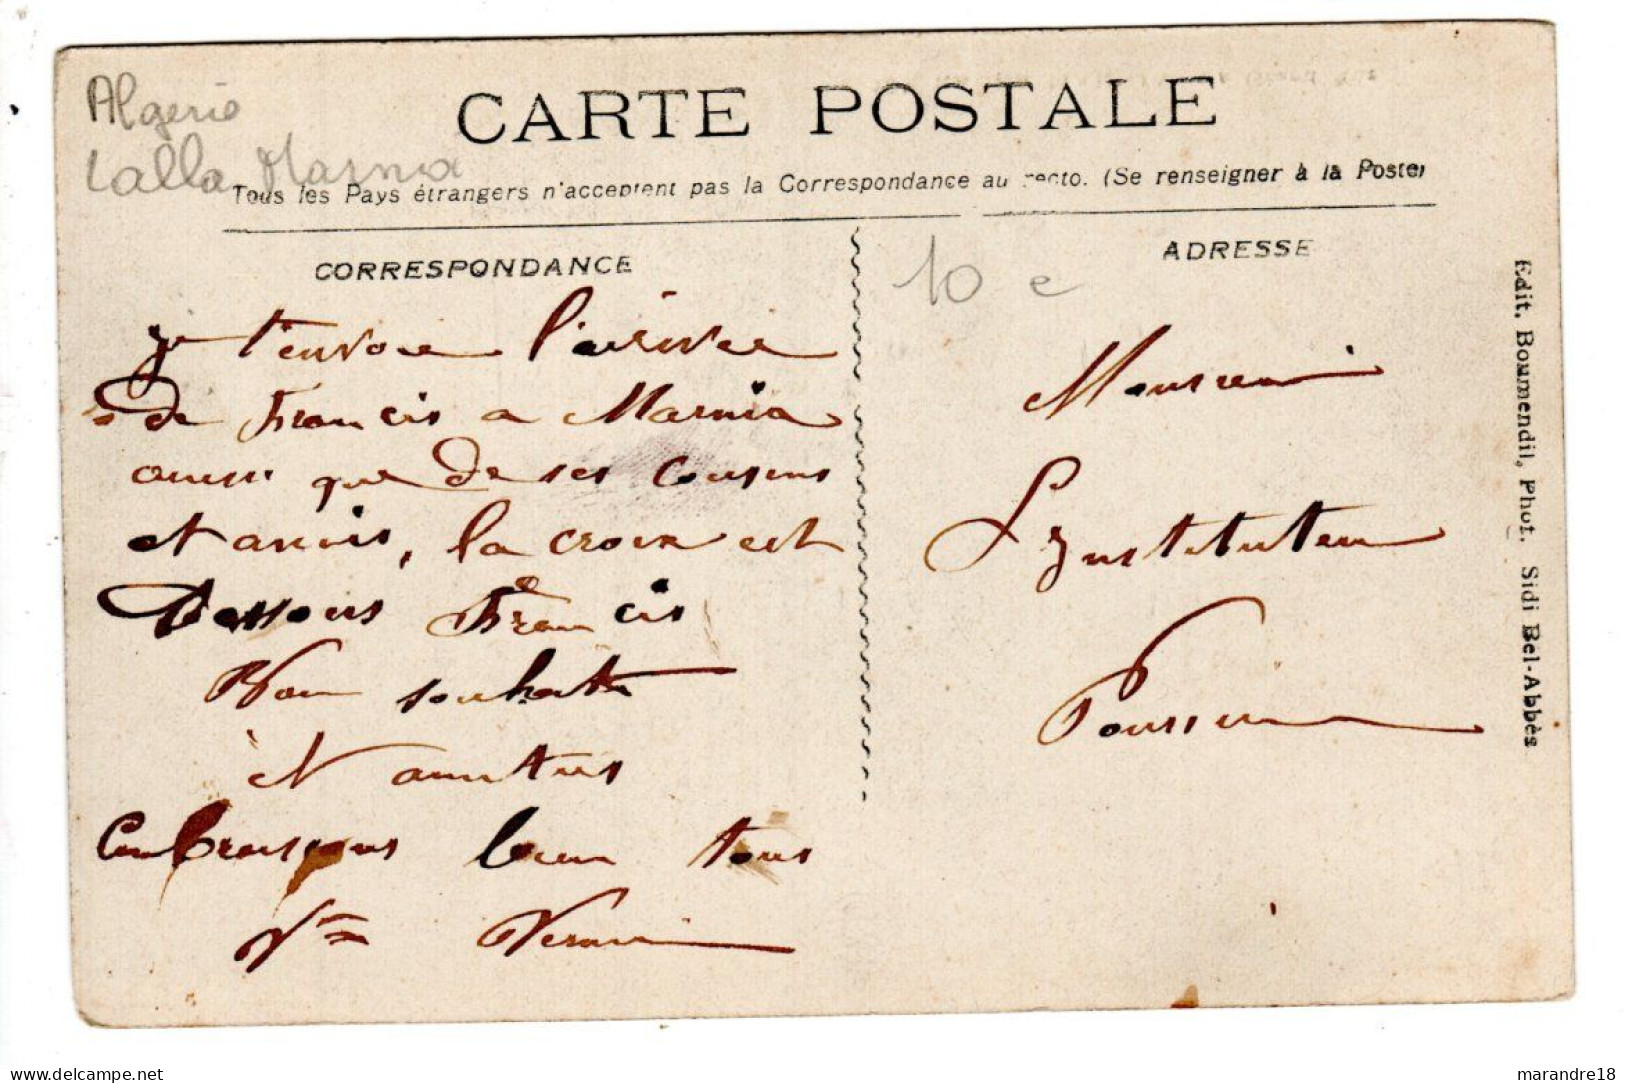 Algerie
Lalla Marnia
CARTE POSTALE
Tous les Pays étrangers n'acceptent pas la Correspondance au recto. (Se renseigner à la Poste)
CORRESPONDANCE
ADRESSE
10 e
je t'envoie l'arivee
de Francis a Marnia
ainssi que de ses Cousins
et amis, la croix est
Dessous Francis
Bon souhait
et amities
Embrassons bien tous
Monsieur
L'Instituteur
Poussin
Edit. Boumendil, Phot. Sidi Bel-Abbès
delcampe.net
marandre18